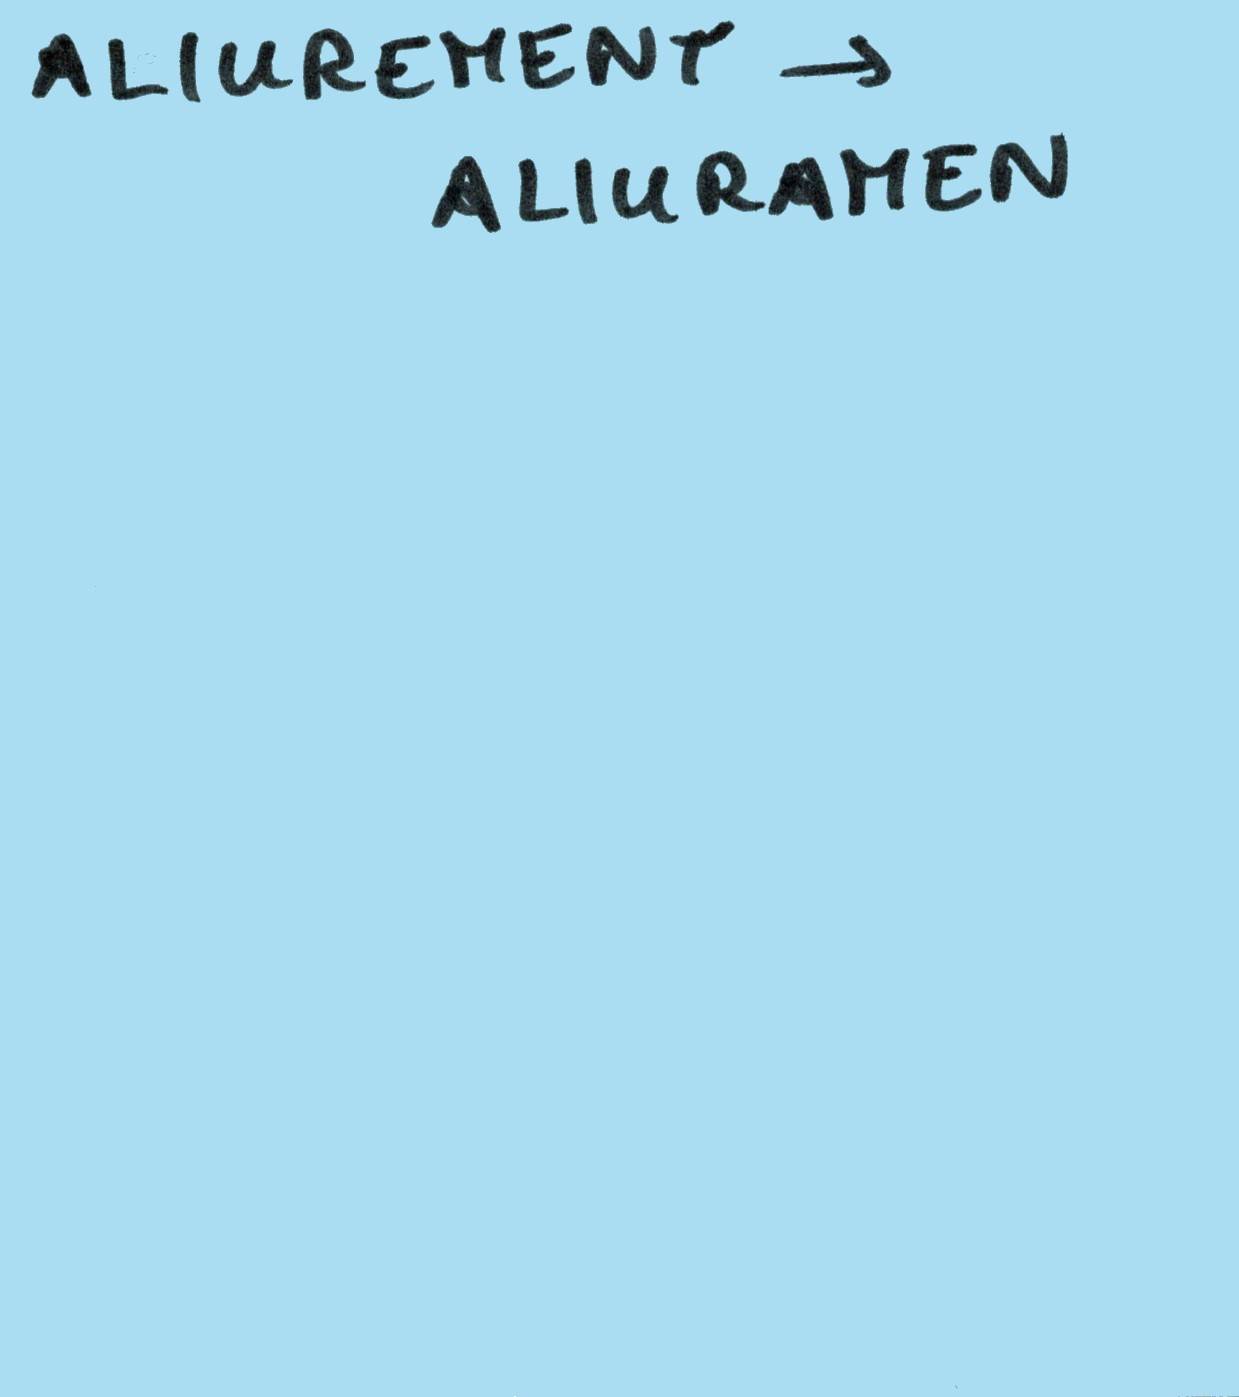 ALIUREMENT →
ALIURAMEN